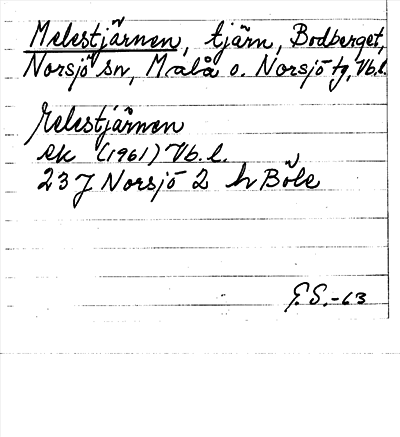 Melestjärnen, tjärn, Bodberget,
Norsjö sn, Malå o. Norsjö tg, Vb.l.
Melestjärnen
ek (1961) Vb.l.
23 J Norsjö 2 h Böle
E.S.-63